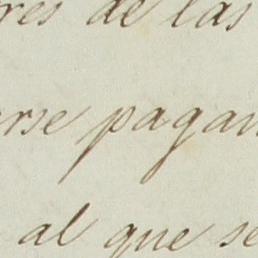 res de las
rse pagan
al que se